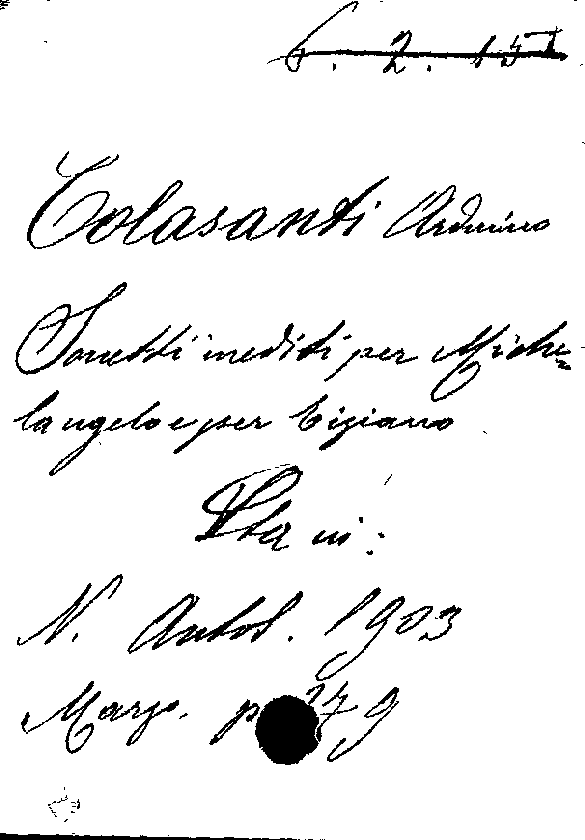 6. 2. 15
Colasanti Arduino
Sonetti inediti per Miche=
langelo e per Tiziano
Sta in:
N. Antol. 1903
Marzo. p. 279